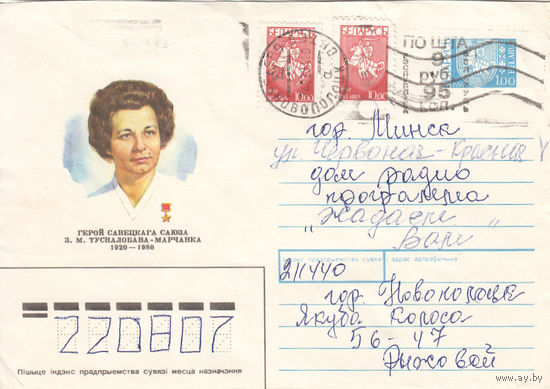 БЕЛАРУСЬ
BELARUS
10.00
БЕЛАРУСЬ
BELARUS
10.00
НОВОПОЛОЦК
ПОШТА
9
руб
95
коп.
BELARUS
1.00
гор. Минск
ул. Червоная-Красная 4
дом радио
программа
„Жадаем
Вам"
ГЕРОЙ САВЕЦКАГА САЮЗА
З. М. ТУСНАЛОБАВА-МАРЧАНКА
1920—1980
індэкс прадпрыемства сувязі і адрас адпраўшчыка
211440
гор. Новополоцк
Якуба Коласа
56-47
Рыжовой
220807
Пішыце індэкс прадпрыемства сувязі месца назначэння
www.ay.by